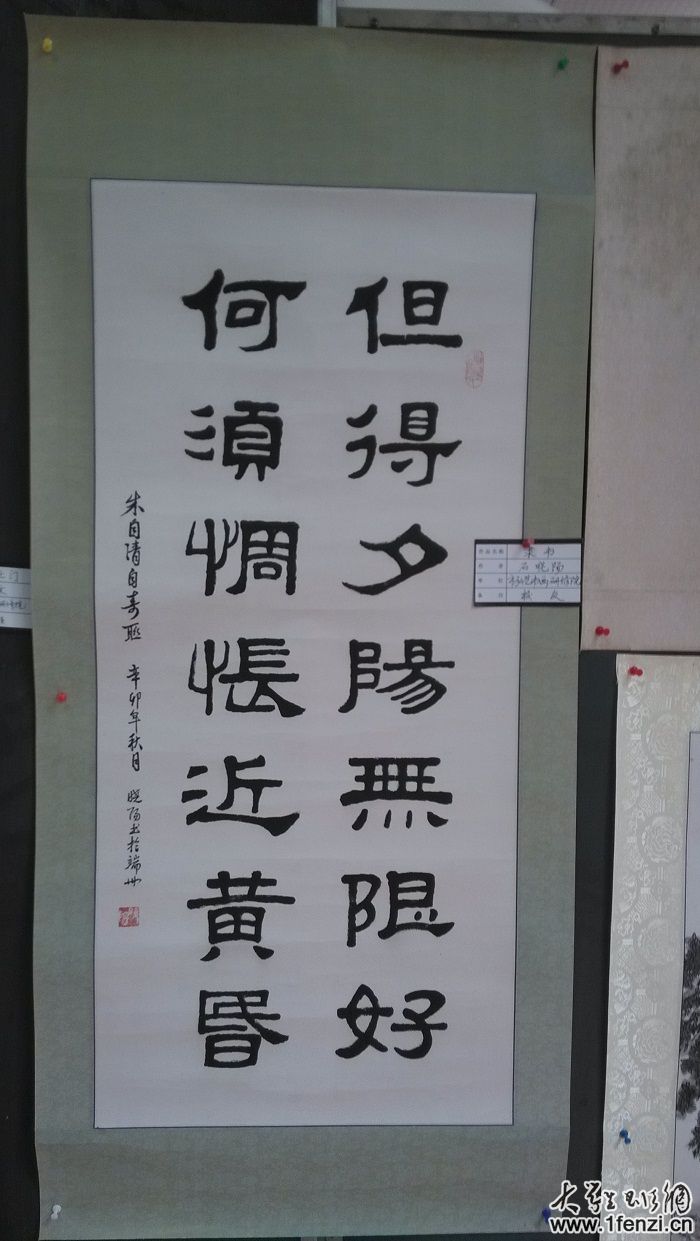 但得夕陽無限好
何須惆悵近黄昬
朱自清自寿联 辛卯年秋月 晓阳书於端州
作品名称 隶书
作者 石晓阳
单位
备注 校友
大学生班网
www.1fenzi.cn